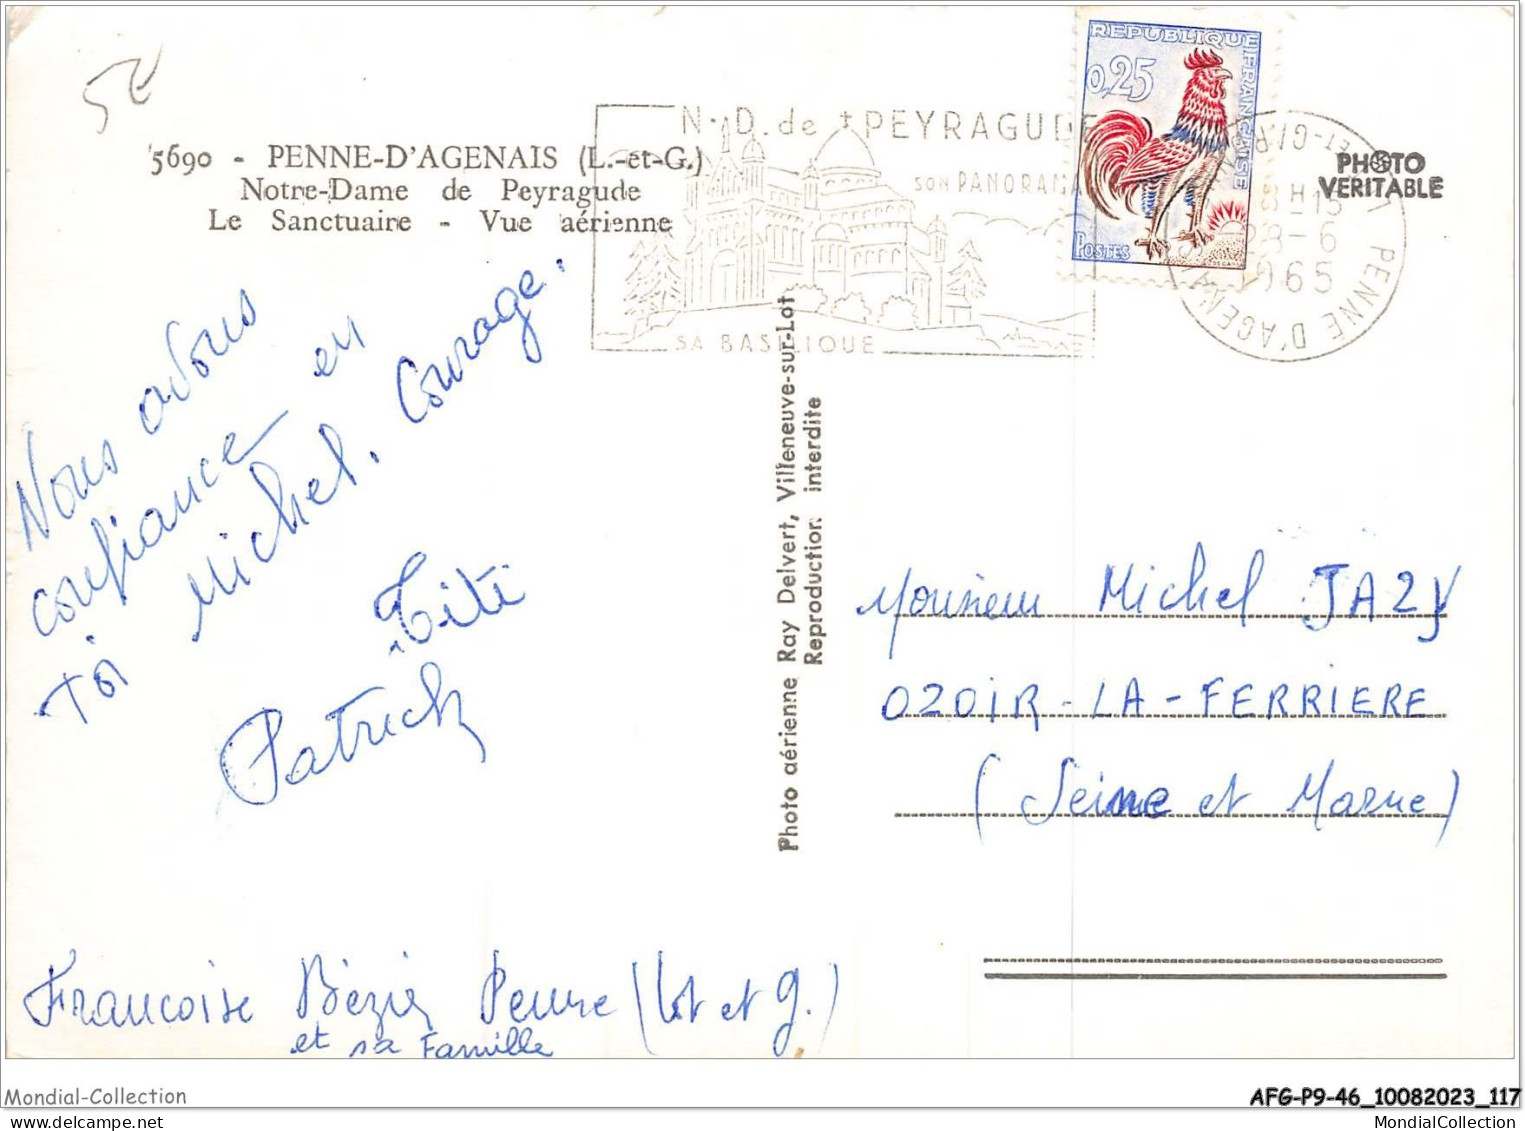 5E
5690 - PENNE-D'AGENAIS (L.-et-G.)
Notre-Dame de Peyragude
Le Sanctuaire - Vue aérienne
N.D. de PEYRAGUDE
son PANORAMA
SA BASILIQUE
REPUBLIQUE FRANÇAISE
0,25
POSTES
8H-15
8-6
1965
PENNE D'AGENAIS
PHOTO
VERITABLE
Nous avons
confiance en
toi Michel. Courage.
Titi
Patrick
Francoise Bézie Penne (Lot et G.)
et sa Famille
Photo aérienne Ray Delvert, Villeneuve-sur-Lot
Reproduction interdite
Monsieur Michel JAZY
OZOIR-LA-FERRIERE
(Seine et Marne)
Mondial-Collection
AFG-P9-46_10082023_117
MondialCollection